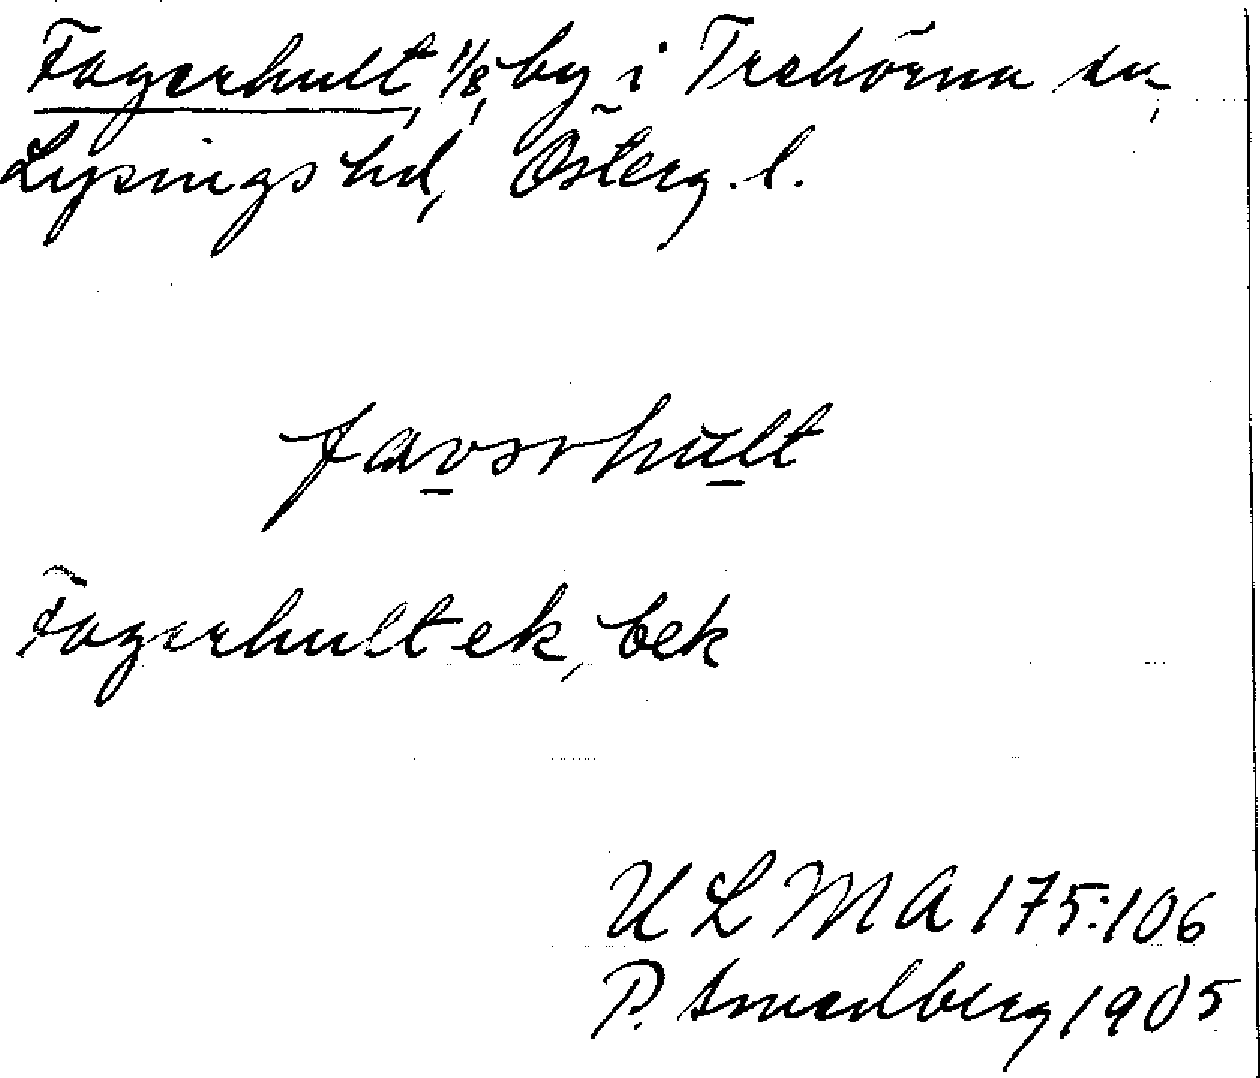 Fagerhult, 1/8, by i Trehörna sn,
Lysings hd, Österg. l.
favorhult
Fagerhult ek, bek
ULMA 175:106
P. Smedberg 1905